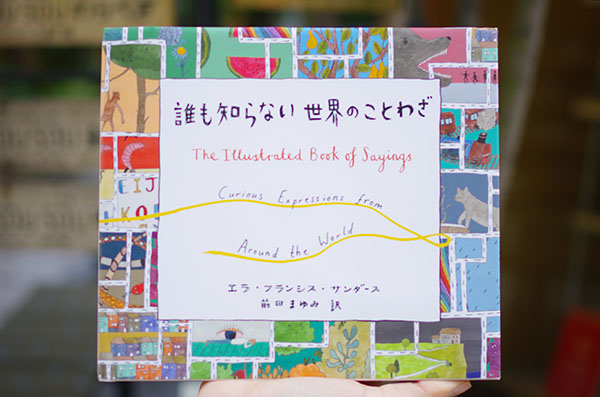 誰も知らない 世界のことわざ
The Illustrated Book of Sayings
Curious Expressions from
Around the World
エラ・フランシス・サンダース
前田まゆみ 訳
EIJ
KO